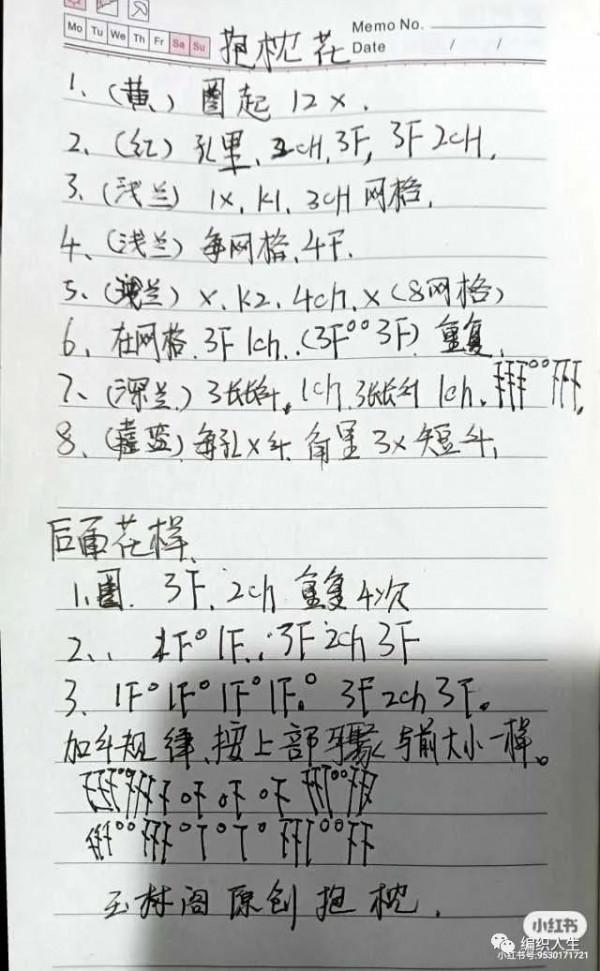 Mo Tu We Th Fr Sa Su
Memo No.
Date / /
抱枕花
1、(黄、) 圈起 12x.
2、(红) 孔里、2cH, 3F, 3F 2cH,
3、(浅兰) 1x, K1, 3cH 网格,
4、(浅兰) 每网格、4F.
5、(兰) x、K2、4ch、x (8网格)
6、在网格、3F 1ch、(3F°° 3F) 重复、
7、(深兰、) 3长长针, 1ch 3长长针 1ch、
8、(蓝) 每孔x针、角里3x短针、
后面花样、
1、圈. 3F、2ch 重复4次
2、、 1F° 1F、、3F 2ch 3F
3、1F° 1F° 1F° 1F。° 3F 2ch 3F。
加针规律、按上部骤、与前大小一样。
玉树阁原创抱枕.
小红书
编织人生
小红书号:9530171721